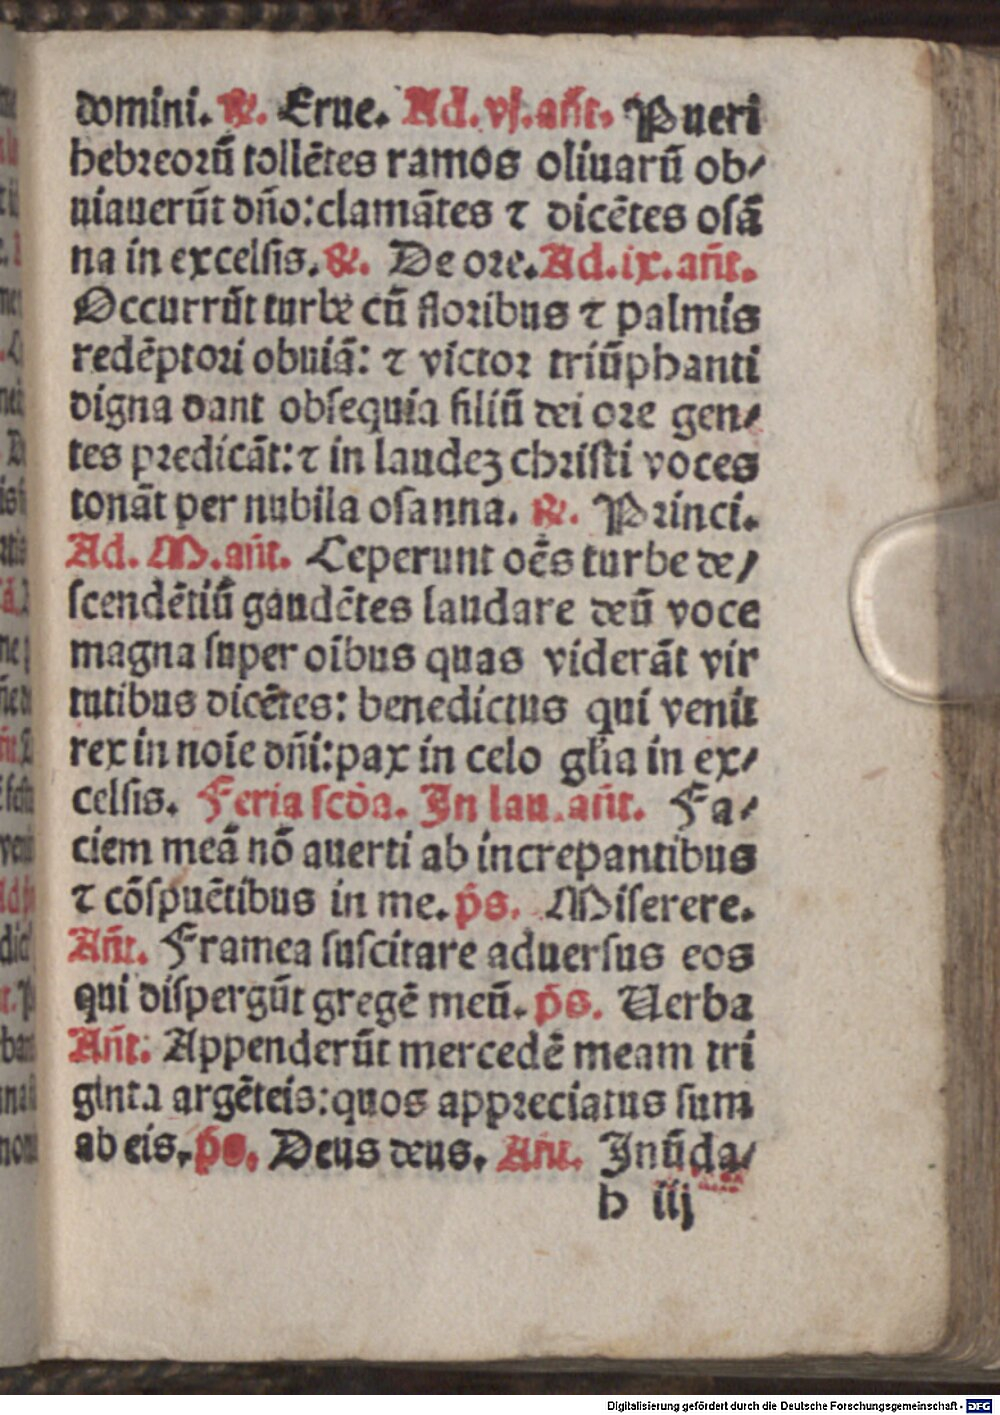 domini. ℟. Erue. Ad. vj. añt. Pueri
hebreorū tollētes ramos oliuarū ob/
uiauerūt dño: clamātes ⁊ dicētes osā
na in excelsis. ℟. De ore. Ad. ix. añt.
Occurrūt turbe cū floribus ⁊ palmis
redēptori obuiā: ⁊ victor triūphanti
digna dant obsequia filiū dei ore gen/
tes predicāt: ⁊ in laudeʒ christi voces
tonāt per nubila osanna. ℟. Princi.
Ad. M. añt. Ceperunt oēs turbe de/
scendētiū gaudētes laudare deū voce
magna super oībus quas viderāt vir
tutibus dicētes: benedictus qui venit
rex in noīe dñi: pax in celo glīa in ex/
celsis. Feria scđa. In lau. añt. Fa/
ciem meā nō auerti ab increpantibus
⁊ cōspuētibus in me. p̄s. Miserere.
Añt. Framea suscitare aduersus eos
qui dispergūt gregē meū. p̄s. Uerba
Añt. Appenderūt mercedē meam tri
ginta argēteis: quos appreciatus sum
ab eis. p̄s. Deus deus. Añt. Inūda/
b iij
Digitalisierung gefördert durch die Deutsche Forschungsgemeinschaft - DFG